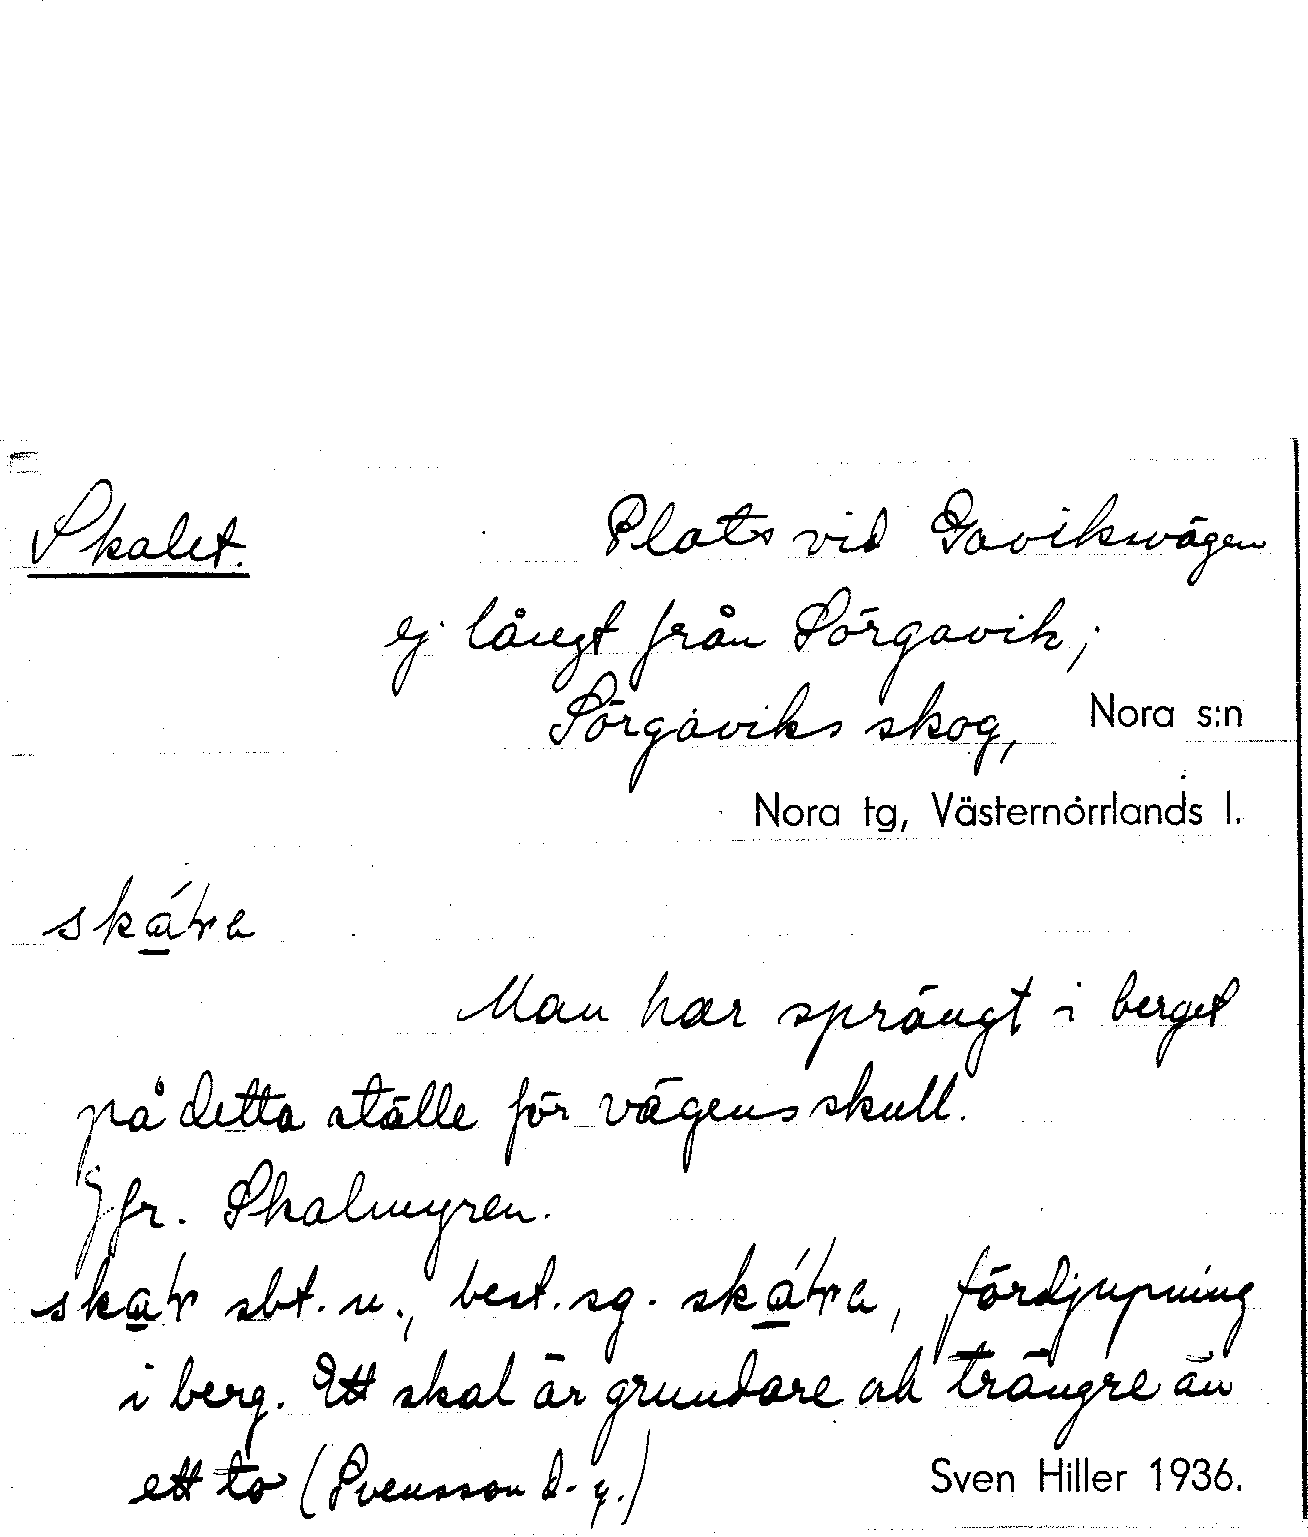 Skalet. Plats vid Gaviksvägen
ej långt från Sörgavik;
Sörgaviks skog, Nora s:n
Nora tg, Västernorrlands l.
Man har sprängt i berget
på detta ställe för vägens skull.
Jfr. Skalmyren.
sbt. n., best. sg. fördjupning
i berg. Ett skal är grundare och trängre än
ett to (Svensson d. y.) Sven Hiller 1936.